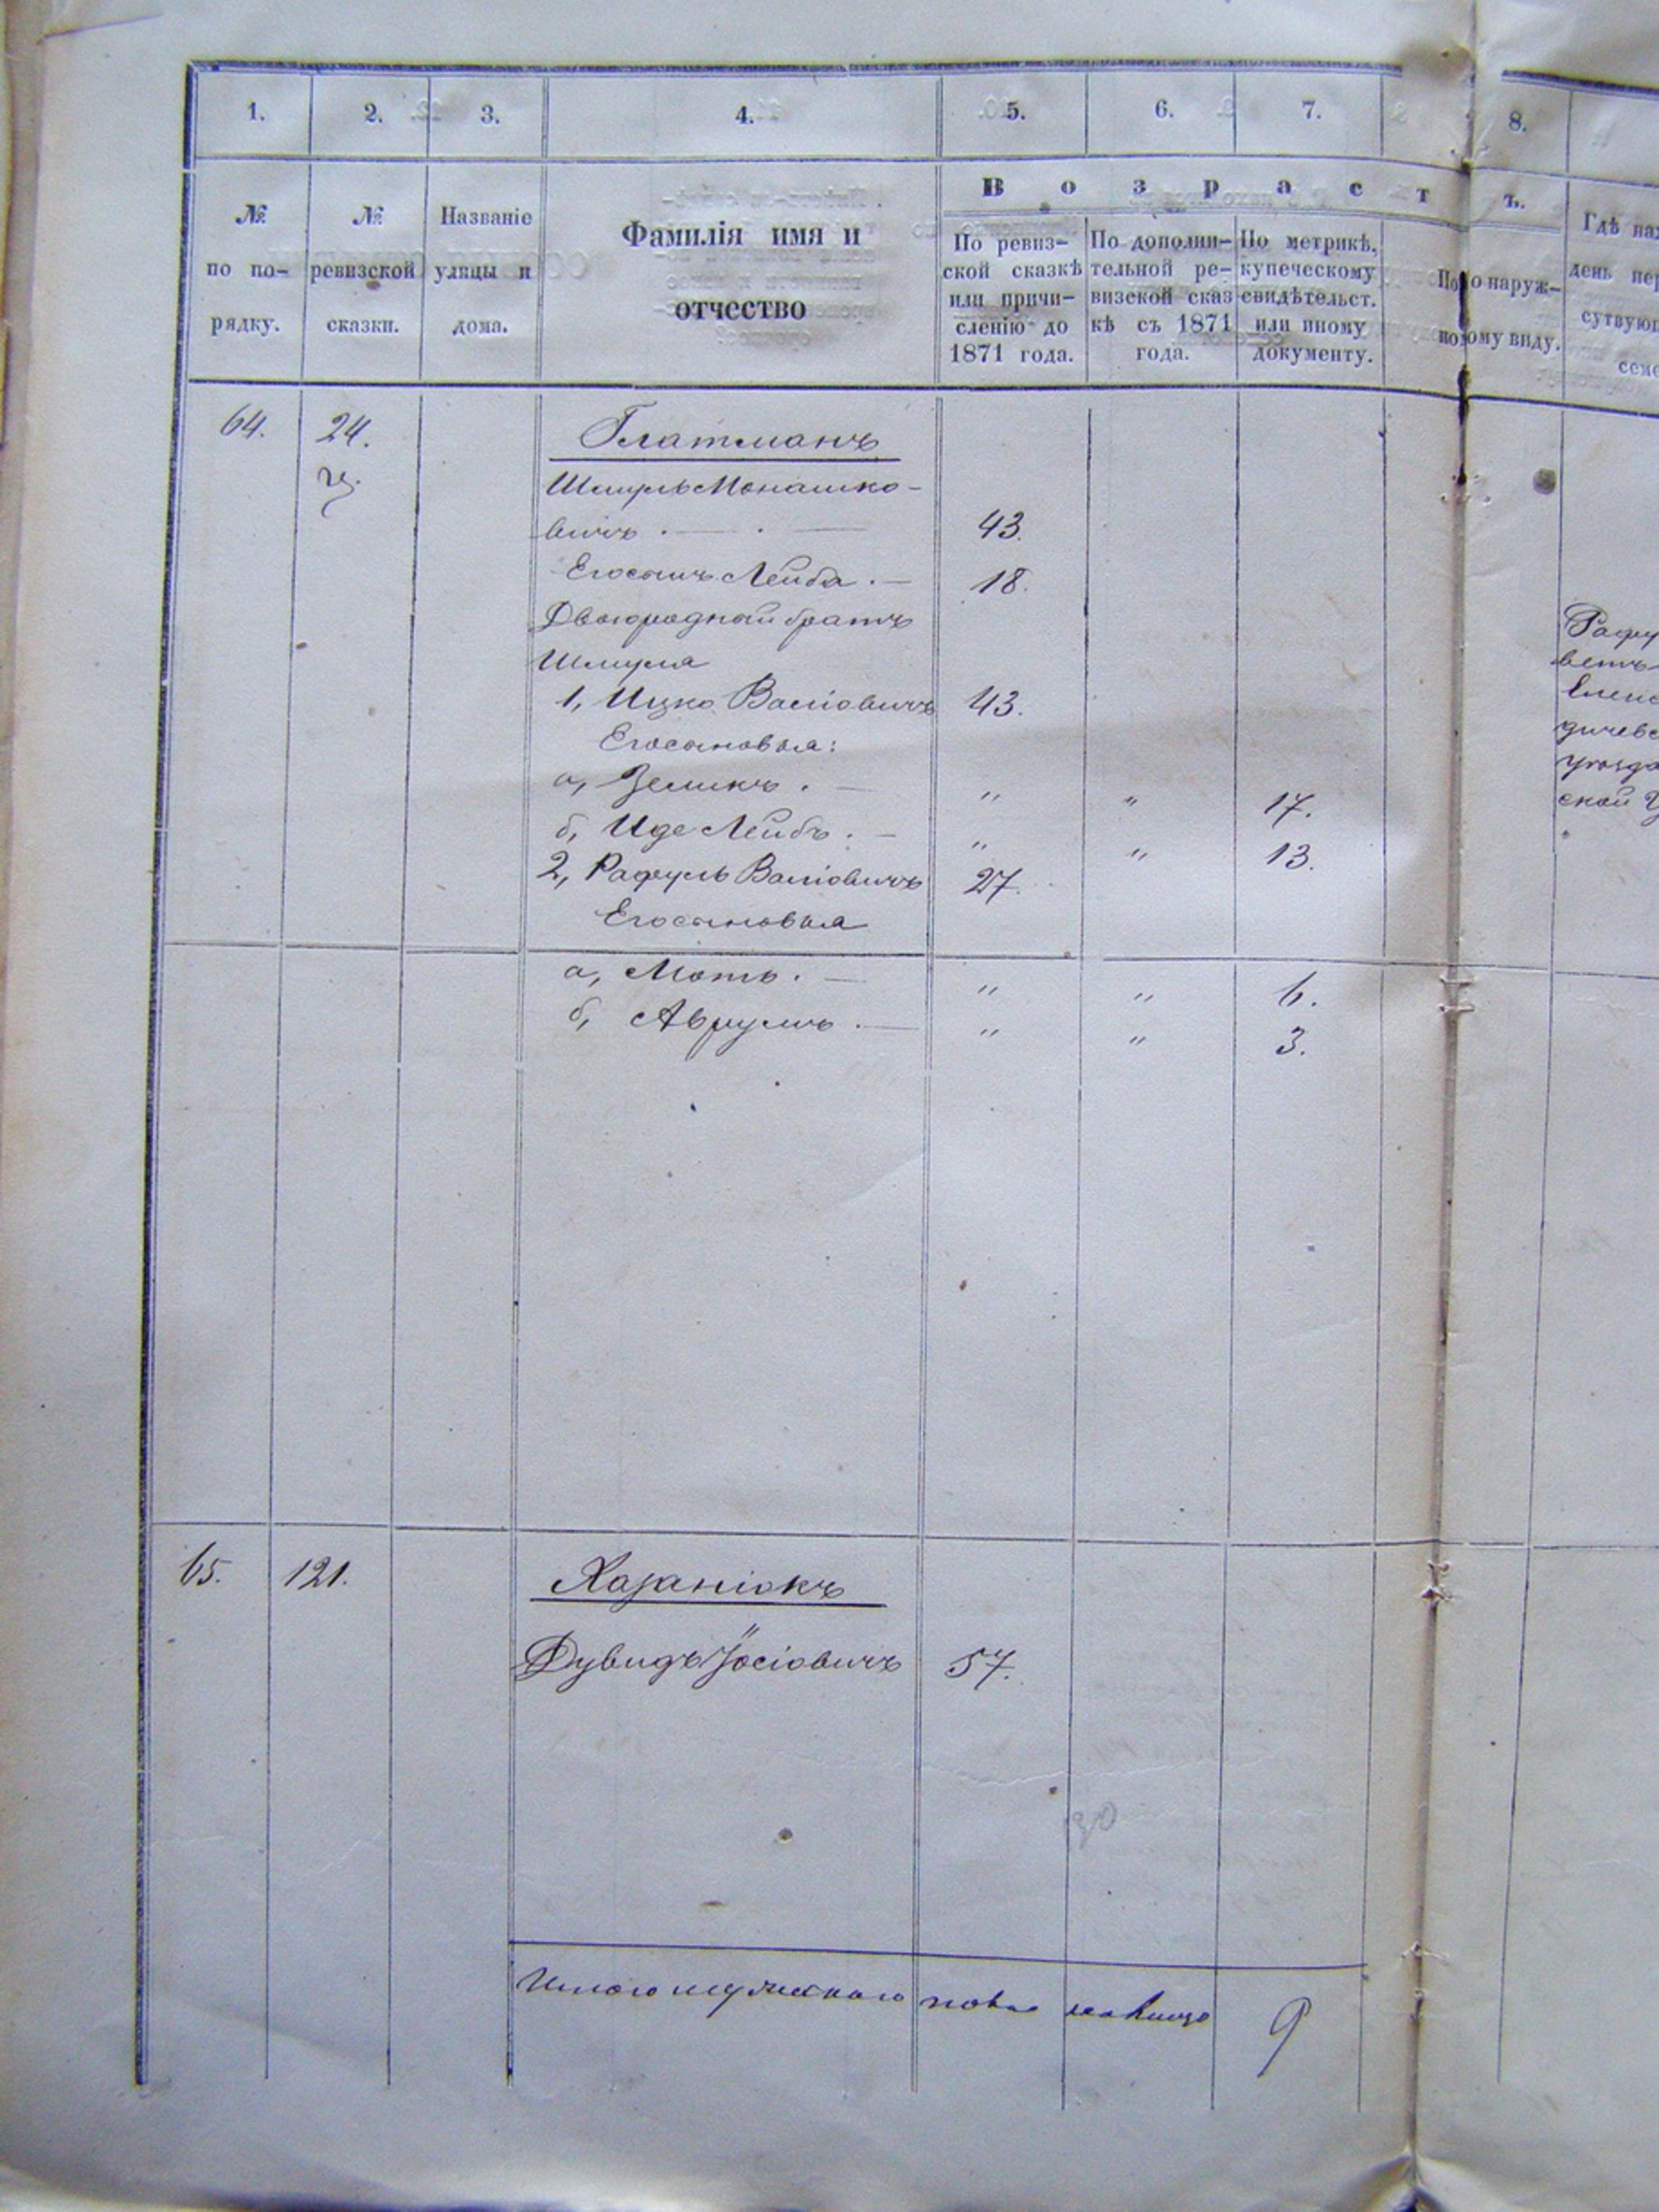 1. 2. 3. 4. 5. 6. 7. 8.
Возрастъ.
№ по порядку.
№ ревизской сказки.
Названіе улицы и дома.
Фамилія имя и отчество
По ревиз-
ской сказкѣ
или причи-
сленію до
1871 года.
По дополни-
тельной ре-
визской сказ
кѣ съ 1871
года.
По метрикѣ,
купеческому
свидѣтельст.
или иному
документу.
По наруж-
ному виду.
Гдѣ
день
64. 24. Глатманъ
Шмуль Монашко-
вичъ . — . — 43.
Его сынъ Лейба . — 18.
Двоюродной братъ
Шмуля
1, Ицко Васіовичъ 43.
Его сыновья:
а, Зеликъ . — " " 17.
б, Иде Лейбъ . — " " 13.
2, Рафуль Васіовичъ 27.
Его сыновья
а, Моть . — " " 6.
б, Аврумъ . — " " 3.
65. 121. Хазаніокъ
Дувидъ Іосіовичъ 57.
Итого мужескаго пола 9